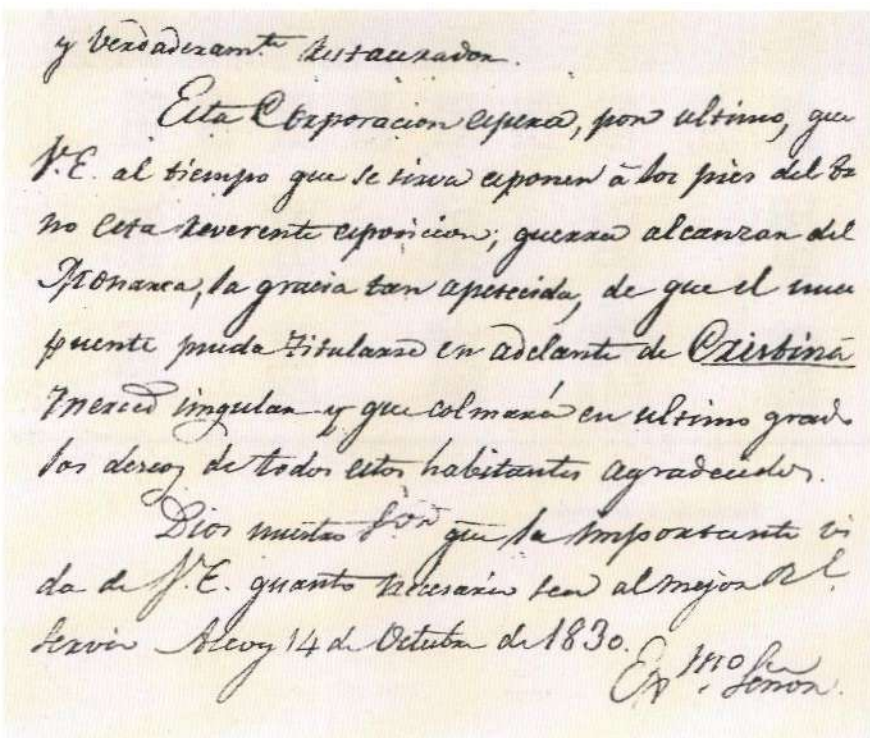 y Verdaderamte Restaurador.
Esta Corporacion espera, por ultimo, que
V.E. al tiempo que se sirva esponer á los pies del tro
no esta reverente esposicion; querra alcanzar del
Monarca, la gracia tan apetecida, de que el nuevo
puente pueda titularse en adelante de Cristina
merced singular y que colmará en ultimo grado
los deseos de todos estos habitantes agradecidos.
Dios nuestro Sor gue la importante vi
da de V.E. quanto necesario sea al mejor Rl
Servio Alcoy 14 de Octubre de 1830.
Exmo Señor.